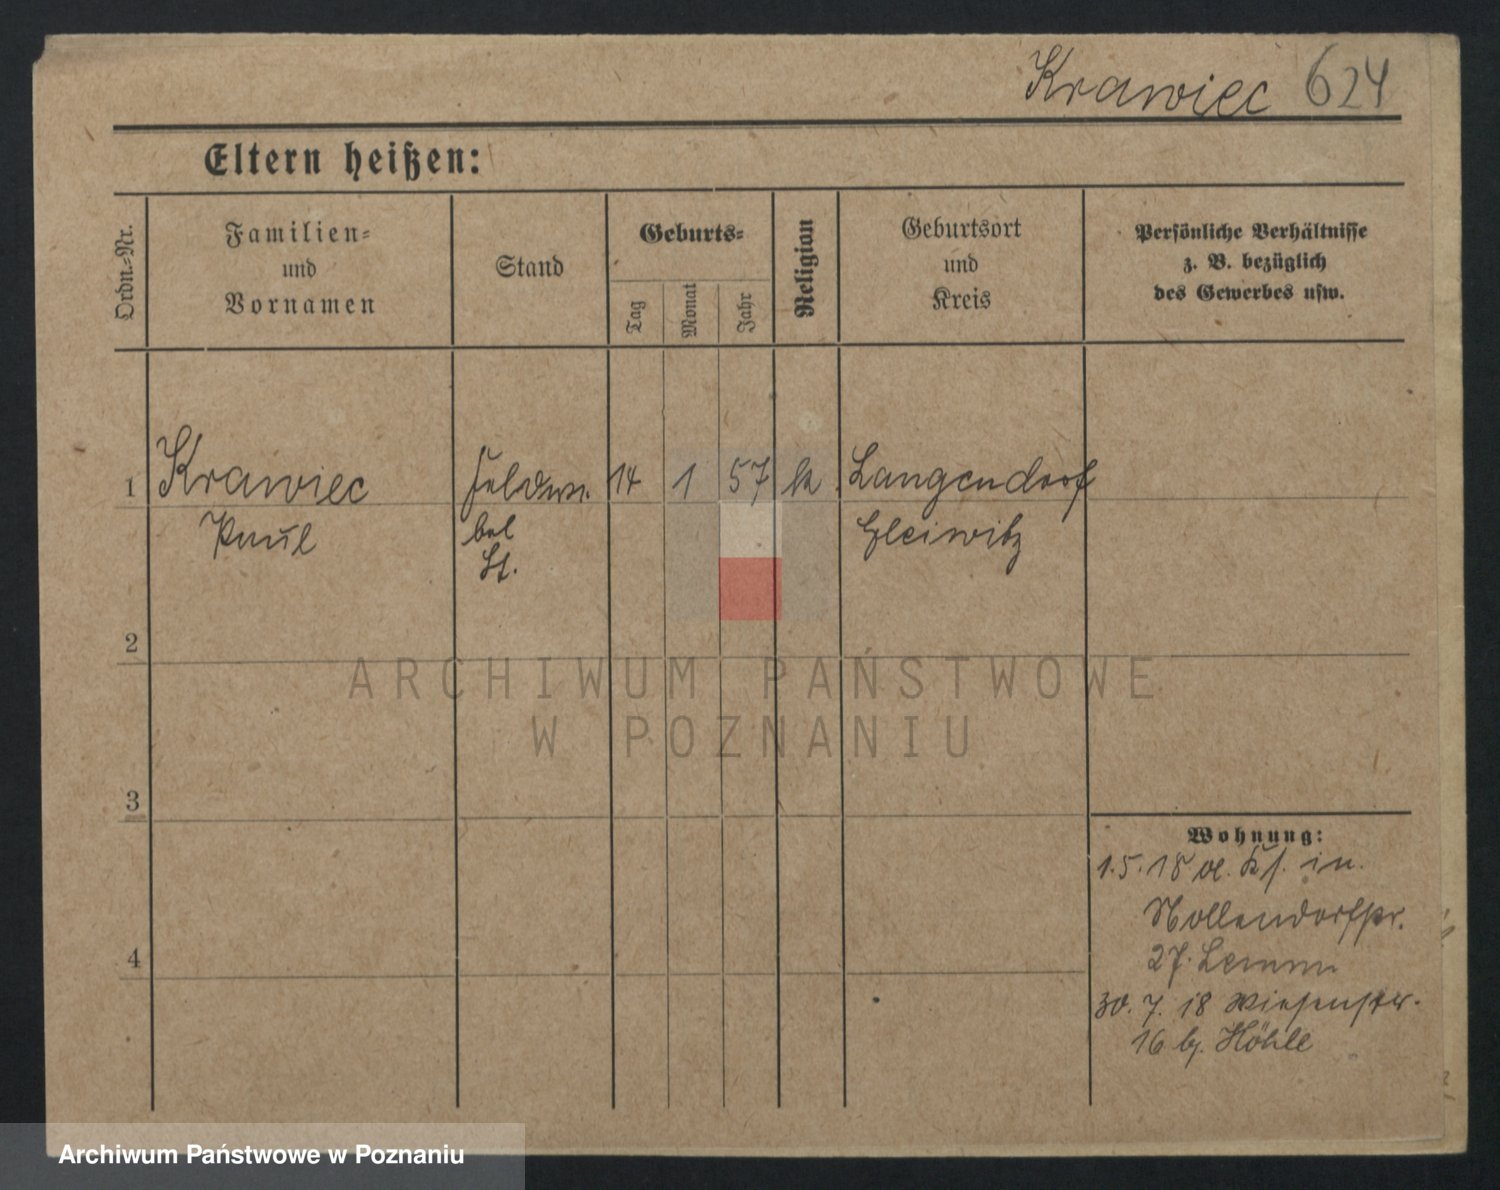 Krawiec 624
Eltern heißen:
Ordn.=Nr.
Familien=
und
Vornamen
Stand
Geburts=
Tag
Monat
Jahr
Religion
Geburtsort
und
Kreis
Persönliche Verhältnisse
z. B. bezüglich
des Gewerbes usw.
1 Krawiec 14 1 57 Langendorf
Paul Gleiwitz
2
3
4
Wohnung:
1.5.18 in
Nollendorfstr.
27.
30. 7. 18 Wiesenstr.
16 b. Höhle
ARCHIWUM PAŃSTWOWE
W POZNANIU
Archiwum Państwowe w Poznaniu